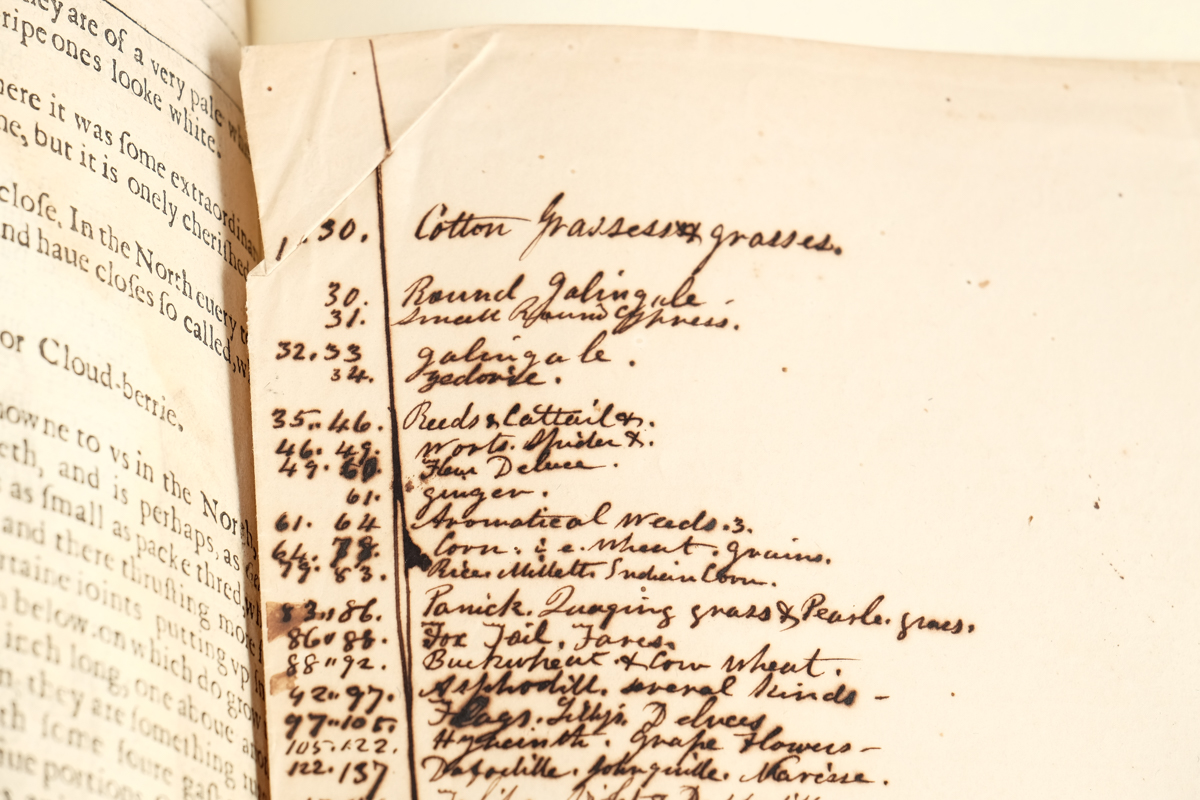 they are of a very pale
ripe ones looke white.
here it was ſome extraordinar
me, but it is onely cheriſhed
cloſe. In the North euery
nd haue cloſes ſo called,
or Cloud-berrie.
nowne to vs in the North
eth, and is perhaps, as
s as ſmall as packe thred,
and there thruſting more
rtaine ioints putting vp
below, on which do grow
inch long, one aboue
they are ſomething
th ſome ſoure
portions
1. 30. Cotton Grasses & grasses.
30. Round Galingale.
31. Small Round Cypress.
32.33 galingale.
34. Zedorie.
35.. 46. Reeds & Cattail &.
46. 49. Worts. Spider &.
49. 60. Fleur Deluce.
61. ginger.
61. 64 Aromatical Weeds.3.
64. 78. Corn. i. e. Wheat. Grains.
79. 83. Rice. Milletts Indian Corn.
83.. 86. Panick. Quaging grass & Pearle. grass.
86" 88. Fox Tail. Tares.
88 " 92. Buckwheat & Cow Wheat.
92.. 97. Asphodill. several kinds -
97.. 105. Flags. Lillys. Deluces
105.122. Hyacinth. Grape Flowers -
122.137 Dafodille. Johnquille. Narisse.